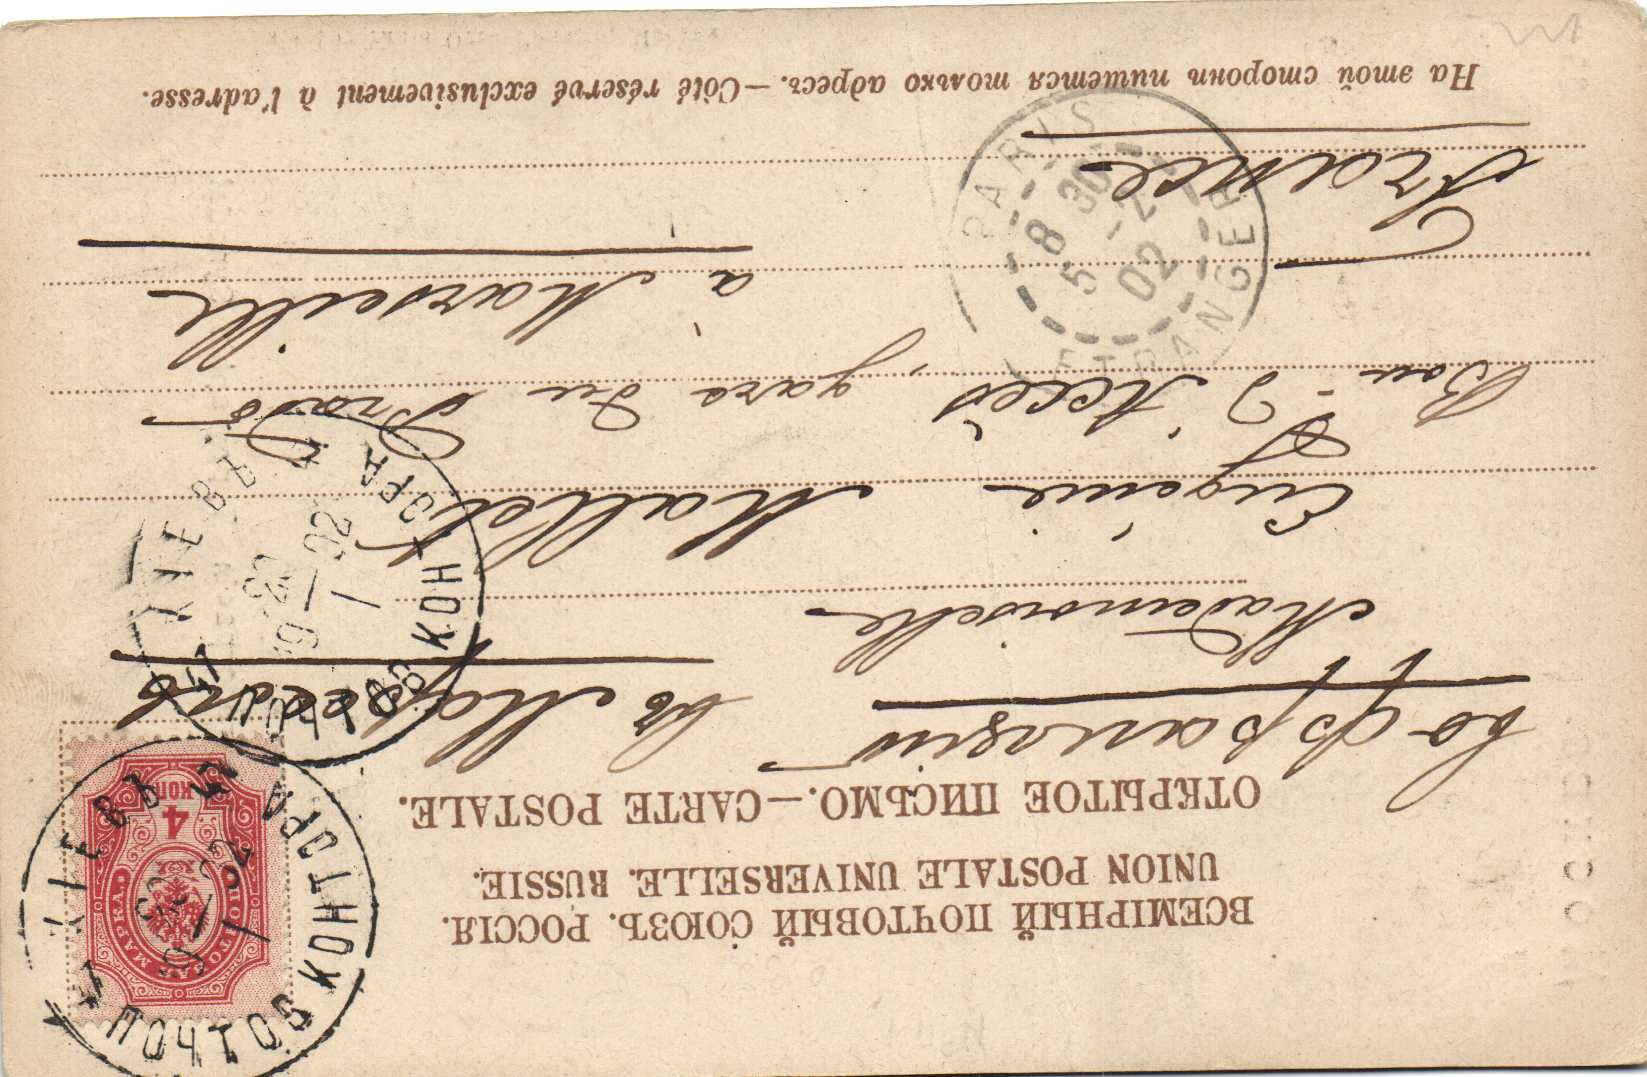 ВСЕМІРНЫЙ ПОЧТОВЫЙ СОЮЗЪ. РОССІЯ.
UNION POSTALE UNIVERSELLE. RUSSIE.
ОТКРЫТОЕ ПИСЬМО.—CARTE POSTALE.
4 КОП
ПОЧТОВАЯ МАРКА
КІЕВЪ ПОЧТОВ КОНТОРА
9 02
во Францію въ Марсель
Mademoiselle
Eugénie Mallet
Bou-d d'Accès, gare du Prado
à Marseille
France
КІЕВЪ ПОЧТОВ КОНТОРА
9 02
PARIS ETRANGER
8 30
5 -2
02
На этой сторонѣ пишется только адресъ.—Côté réservé exclusivement à l'adresse.